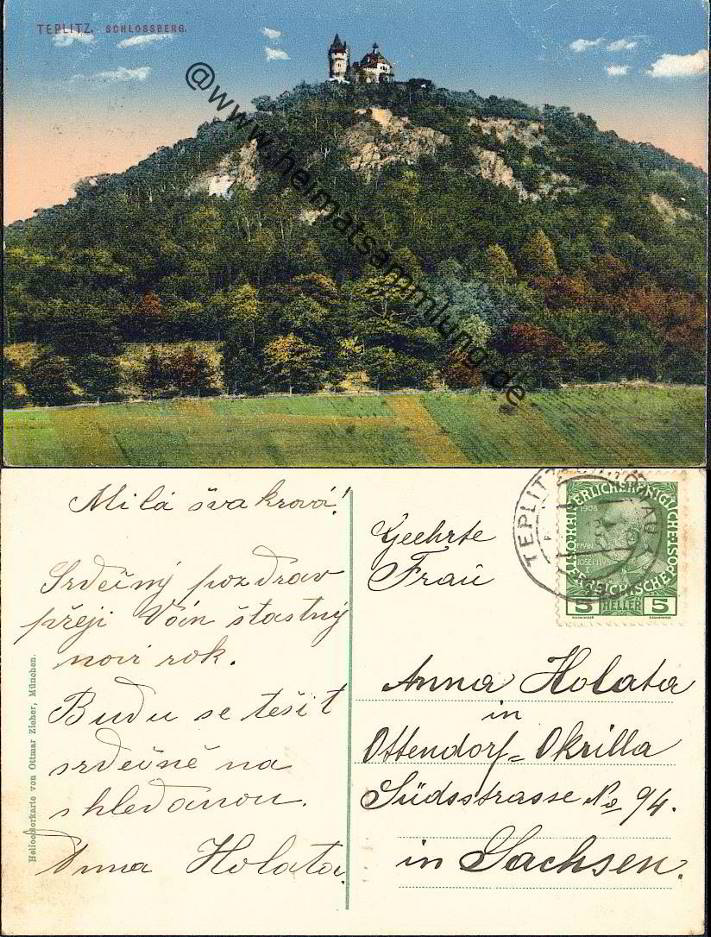 TEPLITZ. SCHLOSSBERG.
@www.heimatsammlung.de
Milá švakrová!
Srdečný pozdrav
přeji Vám šťastný
noví rok.
Budu se tešit
srdečně na
shledanou.
Anna Holata.
Heliocolorkarte von Ottmar Zieher, München.
TEPLITZ
1908
5 HELLER 5
Geehrte
Fraŭ
Anna Holata
in
Ottendorf=Okrilla
Südsstrasse No 94.
in Sachsen.